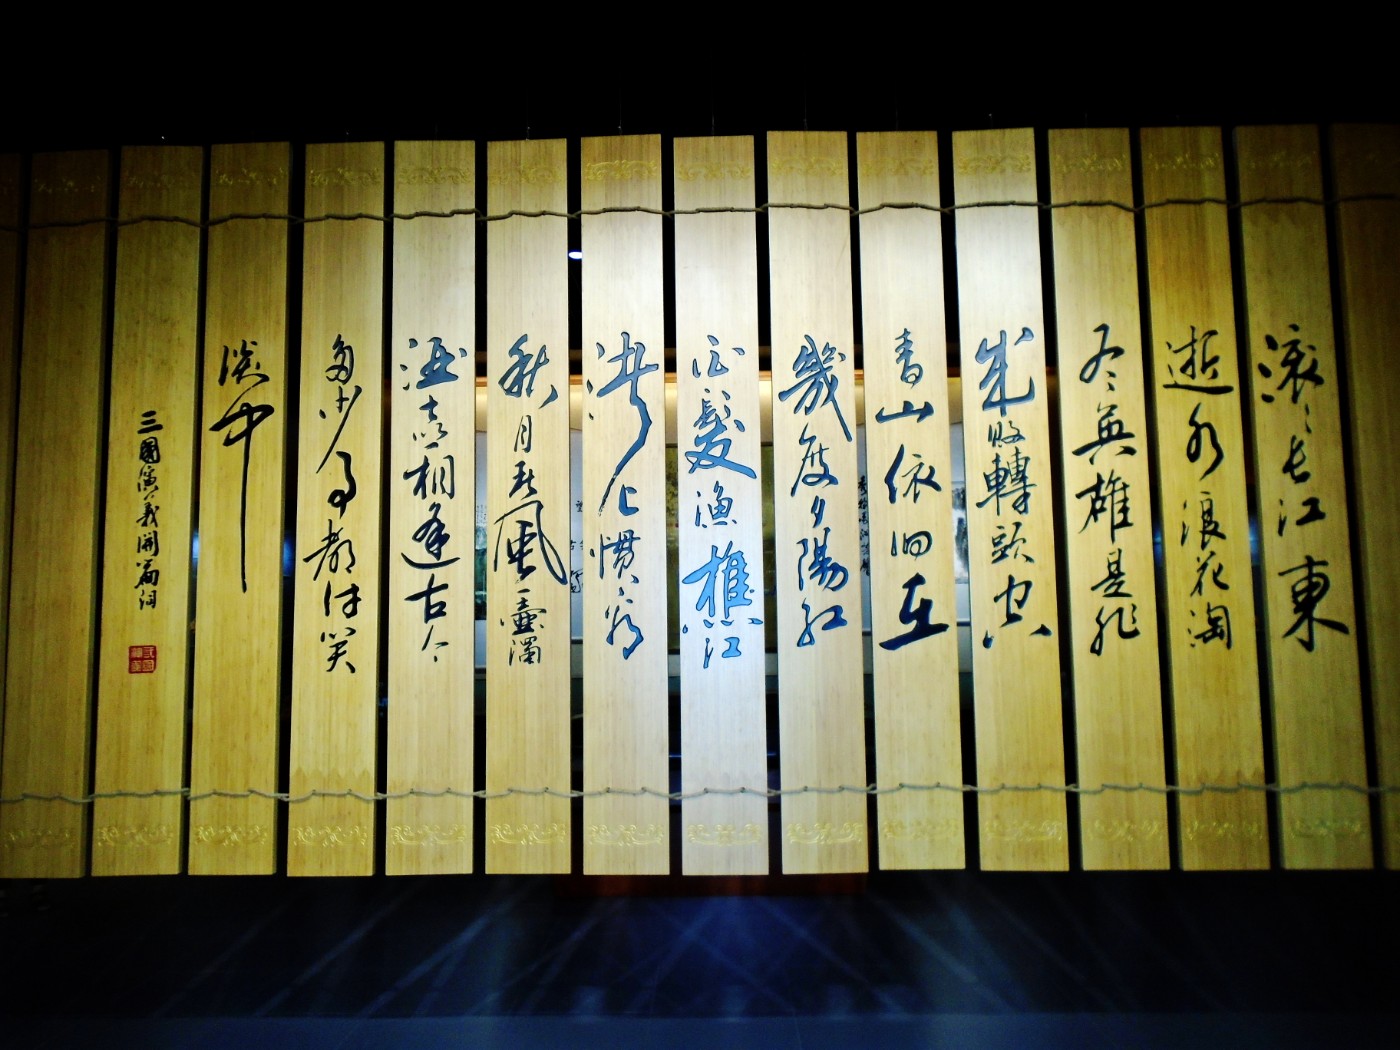 滚滚长江東
逝水浪花淘
尽英雄是非
成敗轉頭空
青山依旧在
幾度夕陽红
白髮渔樵江
渚上惯看
秋月春風一壺濁
酒喜相逢古今
多少事都付笑
谈中
三國演義開篇词